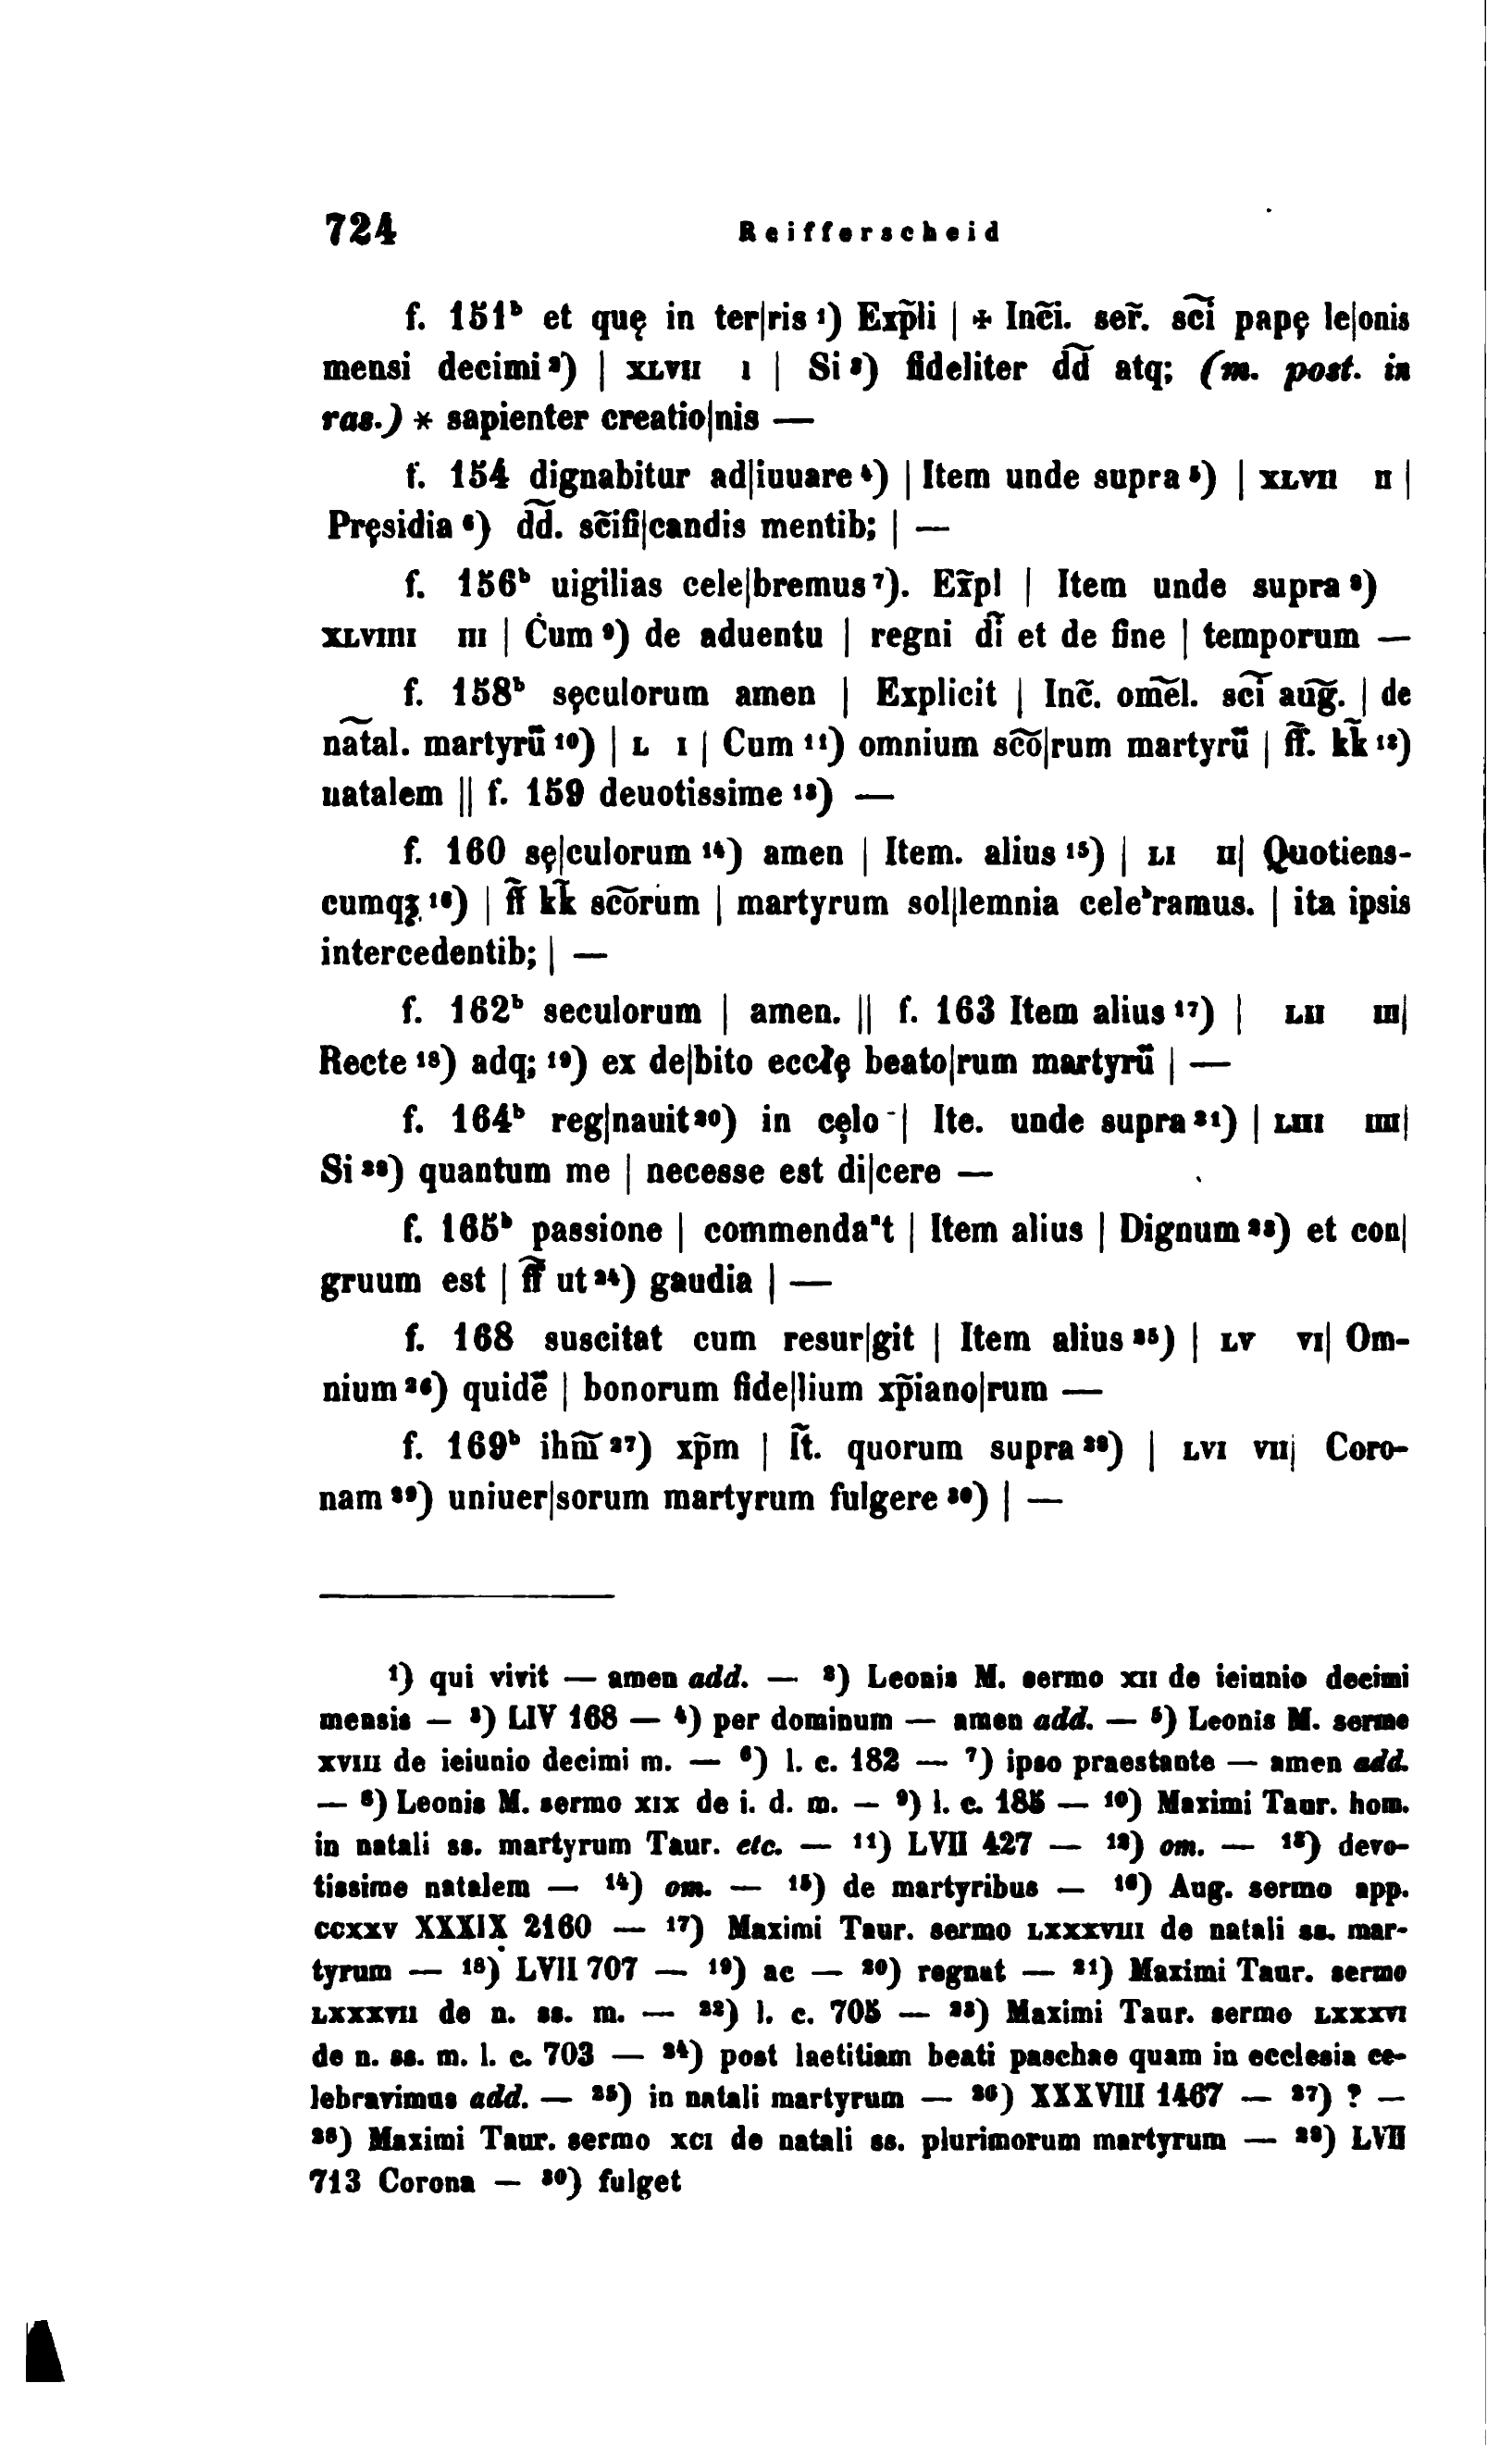 724 Reifferscheid
f. 151ᵇ et quę in ter|ris ¹) Exp̃li | ✢ Inc̃i. ser̃. sc͠i papę le|onis
mensi decimi ²) | XLVII I | Si ³) fideliter dd͠ atq; (m. post. in
ras.) * sapienter creatio|nis —
f. 154 dignabitur ad|iuuare ⁴) | Item unde supra ⁵) | XLVII II |
Pręsidia ⁶) dd͠. sc̃ifi|candis mentib; | —
f. 156ᵇ uigilias cele|bremus ⁷). Ex̃pl | Item unde supra ⁸)
XLVIIII III | Ċum ⁹) de aduentu | regni dı͠ et de fine | temporum —
f. 158ᵇ sęculorum amen | Explicit | Inc̃. om͠el. sc͠i au͠g. | de
na͠tal. martyrũ ¹⁰) | L I | Cum ¹¹) omnium sc͠o|rum martyrũ | ff̃. kk̃ ¹²)
natalem || f. 159 deuotissime ¹³) —
f. 160 sę|culorum ¹⁴) amen | Item. alius ¹⁵) | LI II| Quotiens-
cumqʒ ¹⁶) | ff̃ kk̃ sc͠orum | martyrum sol|lemnia cele'ramus. | ita ipsis
intercedentib; | —
f. 162ᵇ seculorum | amen. || f. 163 Item alius ¹⁷) | LII III|
Recte ¹⁸) adq; ¹⁹) ex de|bito eccłę beato|rum martyrũ | —
f. 164ᵇ reg|nauit ²⁰) in cęlo - | Ite. unde supra ²¹) | LIII IIII|
Si ²²) quantum me | necesse est di|cere —
f. 165ᵇ passione | commendaⁿt | Item alius | Dignum ²³) et con|
gruum est | ff̃ ut ²⁴) gaudia | —
f. 168 suscitat cum resur|git | Item alius ²⁵) | LV VI| Om-
nium ²⁶) quidẽ | bonorum fide|lium xp̃iano|rum —
f. 169ᵇ ihm͠ ²⁷) xp̃m | I͠t. quorum supra ²⁸) | LVI VII| Coro-
nam ²⁹) uniuer|sorum martyrum fulgere ³⁰) | —
¹) qui vivit — amen add. — ²) Leonis M. sermo XII de ieiunio decimi
mensis — ³) LIV 168 — ⁴) per dominum — amen add. — ⁵) Leonis M. sermo
XVIII de ieiunio decimi m. — ⁶) l. c. 182 — ⁷) ipso praestante — amen add.
— ⁸) Leonis M. sermo XIX de i. d. m. — ⁹) l. c. 185 — ¹⁰) Maximi Taur. hom.
in natali ss. martyrum Taur. etc. — ¹¹) LVII 427 — ¹²) om. — ¹³) devo-
tissime natalem — ¹⁴) om. — ¹⁵) de martyribus — ¹⁶) Aug. sermo app.
CCXXV XXXIX 2160 — ¹⁷) Maximi Taur. sermo LXXXVIII de natali ss. mar-
tyrum — ¹⁸) LVII 707 — ¹⁹) ac — ²⁰) regnat — ²¹) Maximi Taur. sermo
LXXXVII de n. ss. m. — ²²) l. c. 705 — ²³) Maximi Taur. sermo LXXXVI
de n. ss. m. l. c. 703 — ²⁴) post laetitiam beati paschae quam in ecclesia ce-
lebravimus add. — ²⁵) in natali martyrum — ²⁶) XXXVIIII 1467 — ²⁷) ? —
²⁸) Maximi Taur. sermo XCI de natali ss. plurimorum martyrum — ²⁹) LVII
713 Corona — ³⁰) fulget